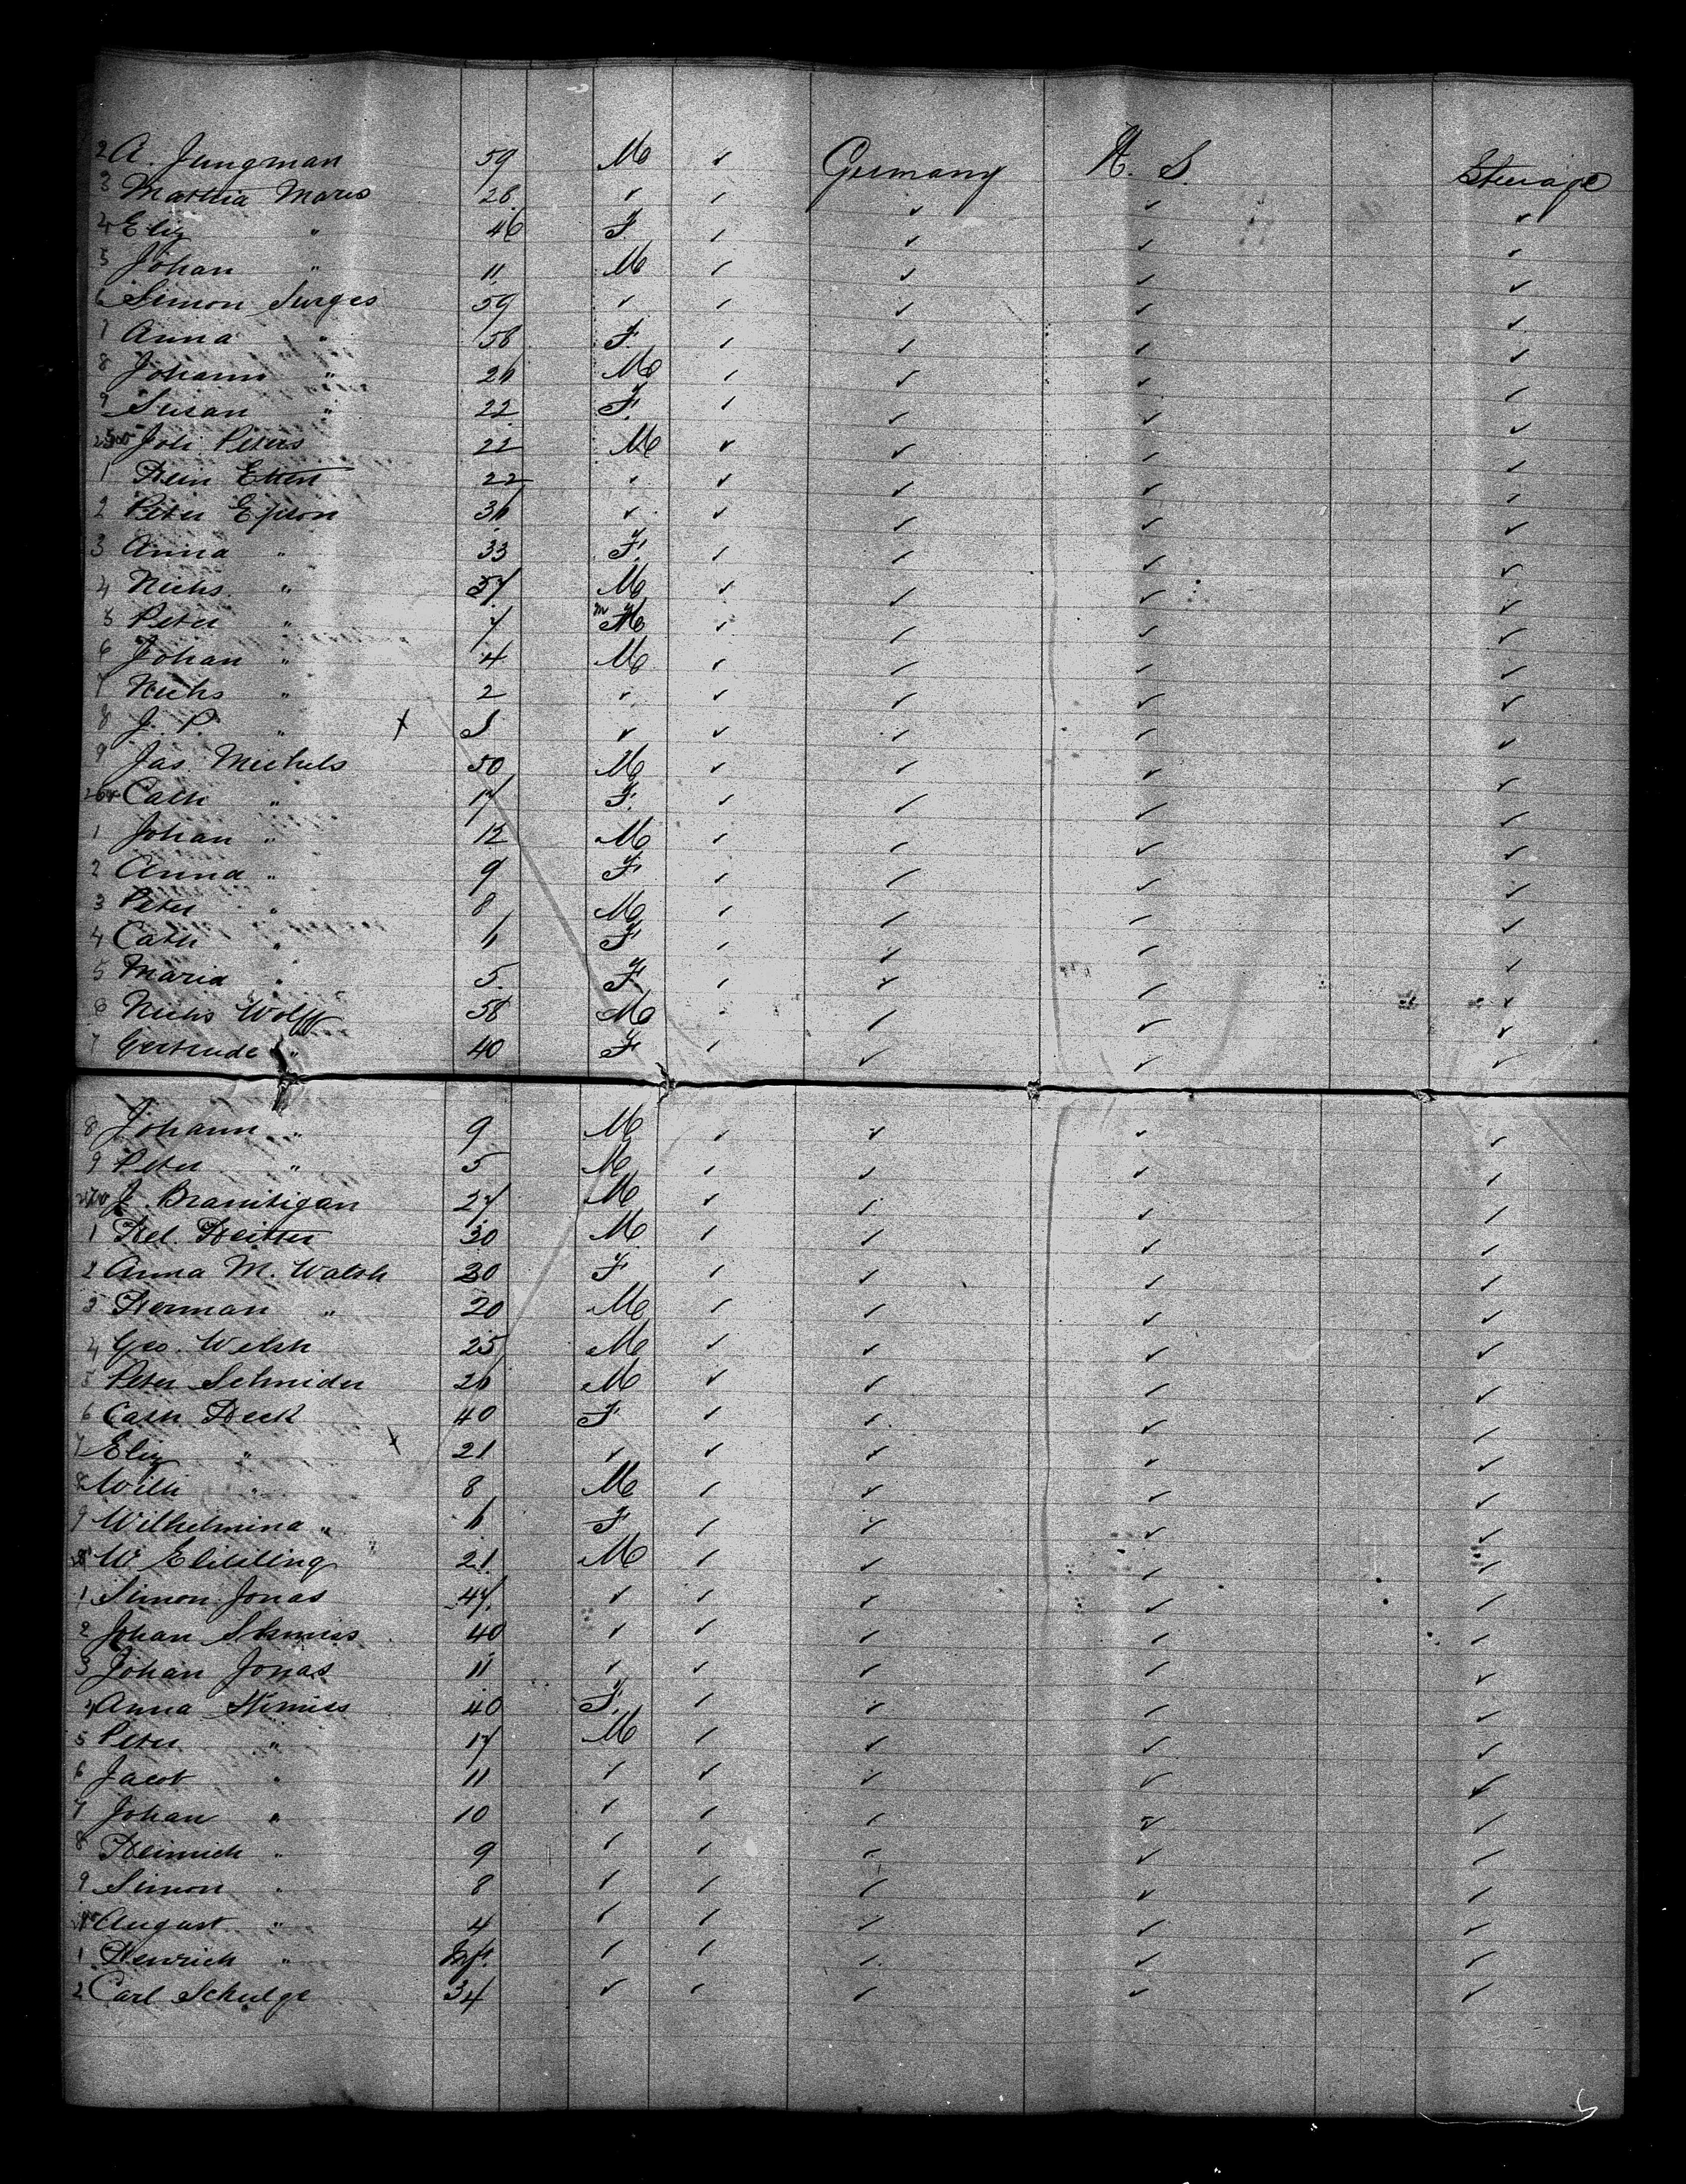 2 A. Jungman 59 M ✓ Germany U. S. Sterage
3 Mathia Mares 28 ✓ ✓ ✓ ✓ ✓
4 Eliz " 46 F. ✓ ✓ ✓ ✓
5 Johan " 11 M ✓ ✓ ✓ ✓
6 Simon Surges 59 ✓ ✓ ✓ ✓ ✓
7 Anna " 58 F ✓ ✓ ✓ ✓
8 Johann " 26 M ✓ ✓ ✓ ✓
9 Susan " 22 F. ✓ ✓ ✓ ✓
250 Joh Peters 22 M ✓ ✓ ✓ ✓
1 Hein Etten 22 ✓ ✓ ✓ ✓ ✓
2 Peter 36 ✓ ✓ ✓ ✓ ✓
3 Anna " 33 F. ✓ ✓ ✓ ✓
4 Nichs " 37 M ✓ ✓ ✓ ✓
5 Peter " 7 M ✓ ✓ ✓ ✓
6 Johan " 4 M ✓ ✓ ✓ ✓
7 Nichs " 2 ✓ ✓ ✓ ✓ ✓
8 J. P. " X ✓ ✓ ✓ ✓ ✓
9 Jas Michels 50 M ✓ ✓ ✓ ✓
260 Cath " 17 F. ✓ ✓ ✓ ✓
1 Johan " 12 M ✓ ✓ ✓ ✓
2 Anna " 9 F ✓ ✓ ✓ ✓
3 Peter " 8 M ✓ ✓ ✓ ✓
4 Cath " 6 F ✓ ✓ ✓ ✓
5 Maria " 5. F ✓ ✓ ✓ ✓
6 Nichs Wolff 58 M ✓ ✓ ✓
7 Gertrude " 40 F ✓ ✓ ✓ ✓
8 Johann " 9 M ✓ ✓ ✓ ✓
9 Peter " 5 M ✓ ✓ ✓ ✓
270 J. Branitigan 27 M ✓ ✓ ✓ ✓
1 Hel. 30 M ✓ ✓ ✓ ✓
2 Anna M. Walsh 30 F ✓ ✓ ✓ ✓
3 Herman " 20 M ✓ ✓ ✓ ✓
4 Geo. Welsh 25 M ✓ ✓ ✓ ✓
5 Peter Schnider 26 M ✓ ✓ ✓ ✓
6 Cath Heck 40 F ✓ ✓ ✓ ✓
7 Eliz " X 21 ✓ ✓ ✓ ✓ ✓
8 Wilh " 8 M ✓ ✓ ✓ ✓
9 Wilhelmina " 6 F ✓ ✓ ✓ ✓
W. 21. M ✓ ✓ ✓ ✓
1 Simon Jonas 47. ✓ ✓ ✓ ✓ ✓
2 Johan 40 ✓ ✓ ✓ ✓ ✓
3 Johan Jonas 11 ✓ ✓ ✓ ✓ ✓
4 Anna 40 F. ✓ ✓ ✓ ✓
5 Peter " 17 M ✓ ✓ ✓ ✓
6 Jacob " 11 ✓ ✓ ✓ ✓ ✓
7 Johan " 10 ✓ ✓ ✓ ✓ ✓
8 Heinrich " 9 ✓ ✓ ✓ ✓ ✓
9 Simon " 8 ✓ ✓ ✓ ✓ ✓
August " 4 ✓ ✓ ✓ ✓ ✓
1 Henrich " Inf. ✓ ✓ ✓ ✓ ✓
2 Carl Schulze 34 ✓ ✓ ✓ ✓ ✓